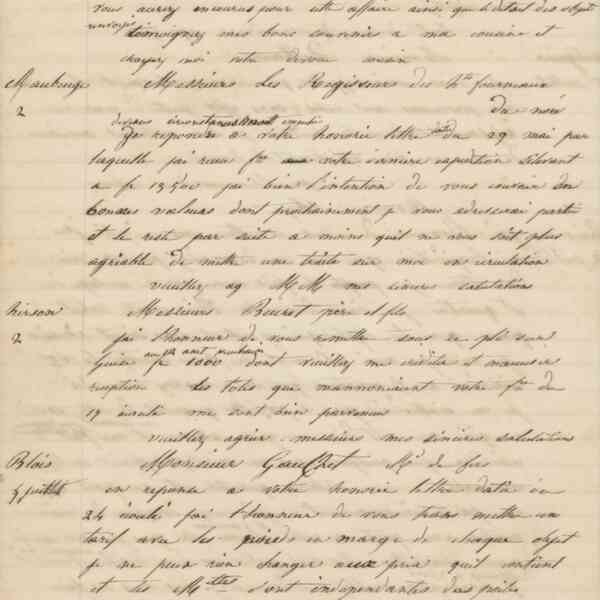 vous aurez encourus pour cette affaire ainsi que le détail des objets
envoyés
témoignez mes bons souvenirs a ma cousine et
croyez moi votre dévoué cousin
Maubeuge Messieurs Les Régisseurs des hts fourneaux
2 du nord
diverses circonstances mont
Je reponds a votre honorée lettre du 29 mai par
laquelle jai recu fre votre derniere expedition sélevant
a fr 1350c jai bien l'intention de vous couvrir en
bonnes valeurs dont prochainement je vous adresserai partie
et le reste par suite a moins quil ne vous soit plus
agréable de mettre une traite sur moi en circulation
veuillez ag MM mes sinceres salutations
hirson Messieurs père et fils
2 jai l'honneur de vous remettre sous ce pli sur
Guise fr 1000 au 31 aout prochain dont veuillez me créditer et maccuser
reception Les toles que mannoncaient votre fre du
19 écoulé me sont bien parvenues
veuillez agréer messieurs mes sincères salutations
Blois Monsieur Gauchet Md de fers
4 juillet en reponse a votre honorée lettre datée du
24 écoulé jai l'honneur de vous transmettre un
tarif avec les poids en marge de chaque objet
je ne peux rien changer aux prix quil contient
et les Mdles sont independantes des poids